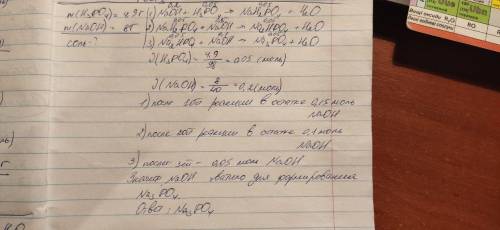 m(H₃PO₄) = 4,9г
1) NaOH + H₃PO₄ → NaH₂PO₄ + H₂O
m(NaOH) = 8г
2) NaH₂PO₄ + NaOH → Na₂HPO₄ + H₂O
соль - ?
3) Na₂HPO₄ + NaOH → Na₃PO₄ + H₂O
ν(H₃PO₄) = 4,9/98 = 0,05 (моль)
ν(NaOH) = 8/40 = 0,2 (моль)
1) после 1ой реакции в остатке 0,15 моль
NaOH
2) после 2ой реакции в остатке 0,1 моль
NaOH
3) после 3й - 0,05 моль NaOH
Значит NaOH хватило для формирования
Na₃PO₄
Ответ: Na₃PO₄